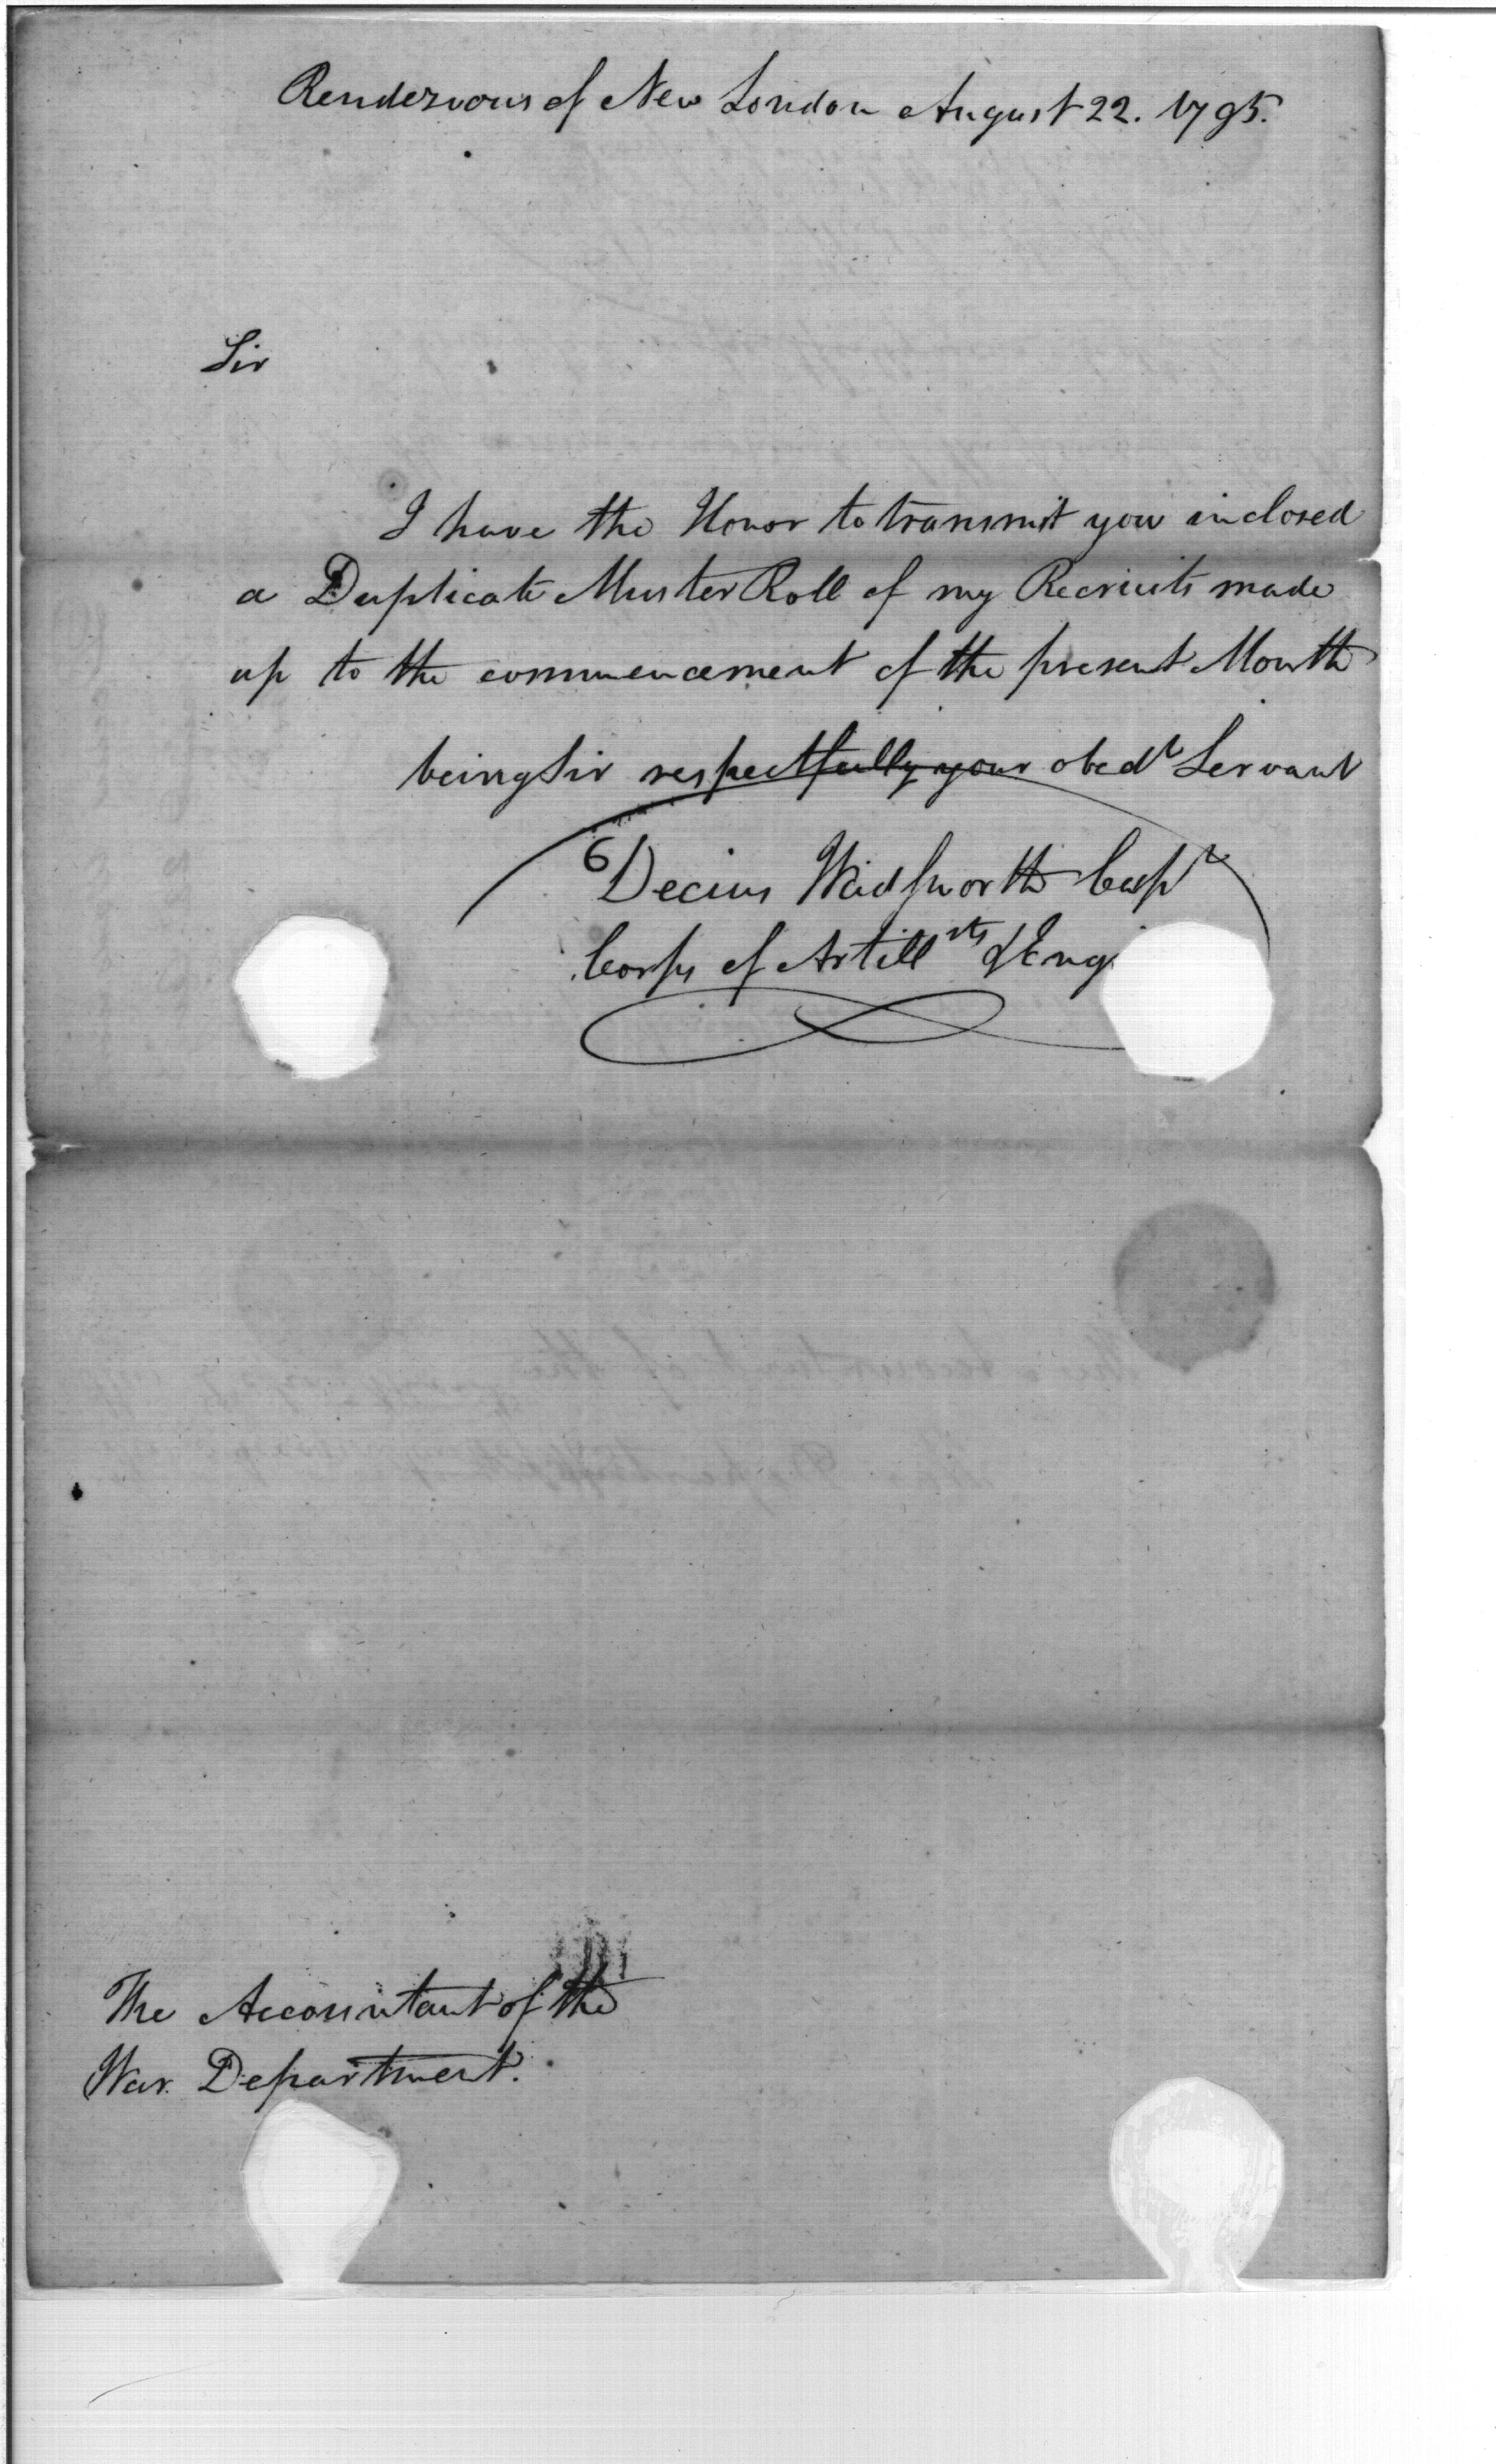 Rendezvous of New London August 22. 1795.
Sir
I have the Honor to transmit you inclosed
a Duplicate Muster Roll of my Recruits made
up to the commencement of the present Month
being Sir respectfully your obedt Servant
Decius Wadsworth Capt
Corps of Artillrts & Eng
The Accountant of the
War Department.